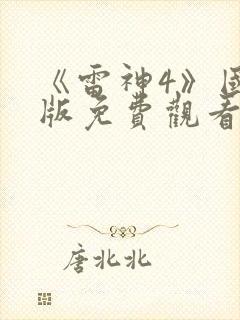 《雷神4》國
版免費觀看
唐北北